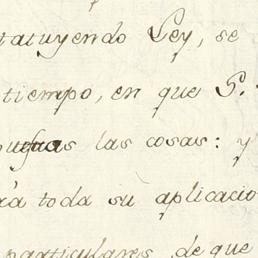 tatuyendo Ley, se
tiempo, en que S.
las cosas: y
rá toda su aplicacio
particulares, de que